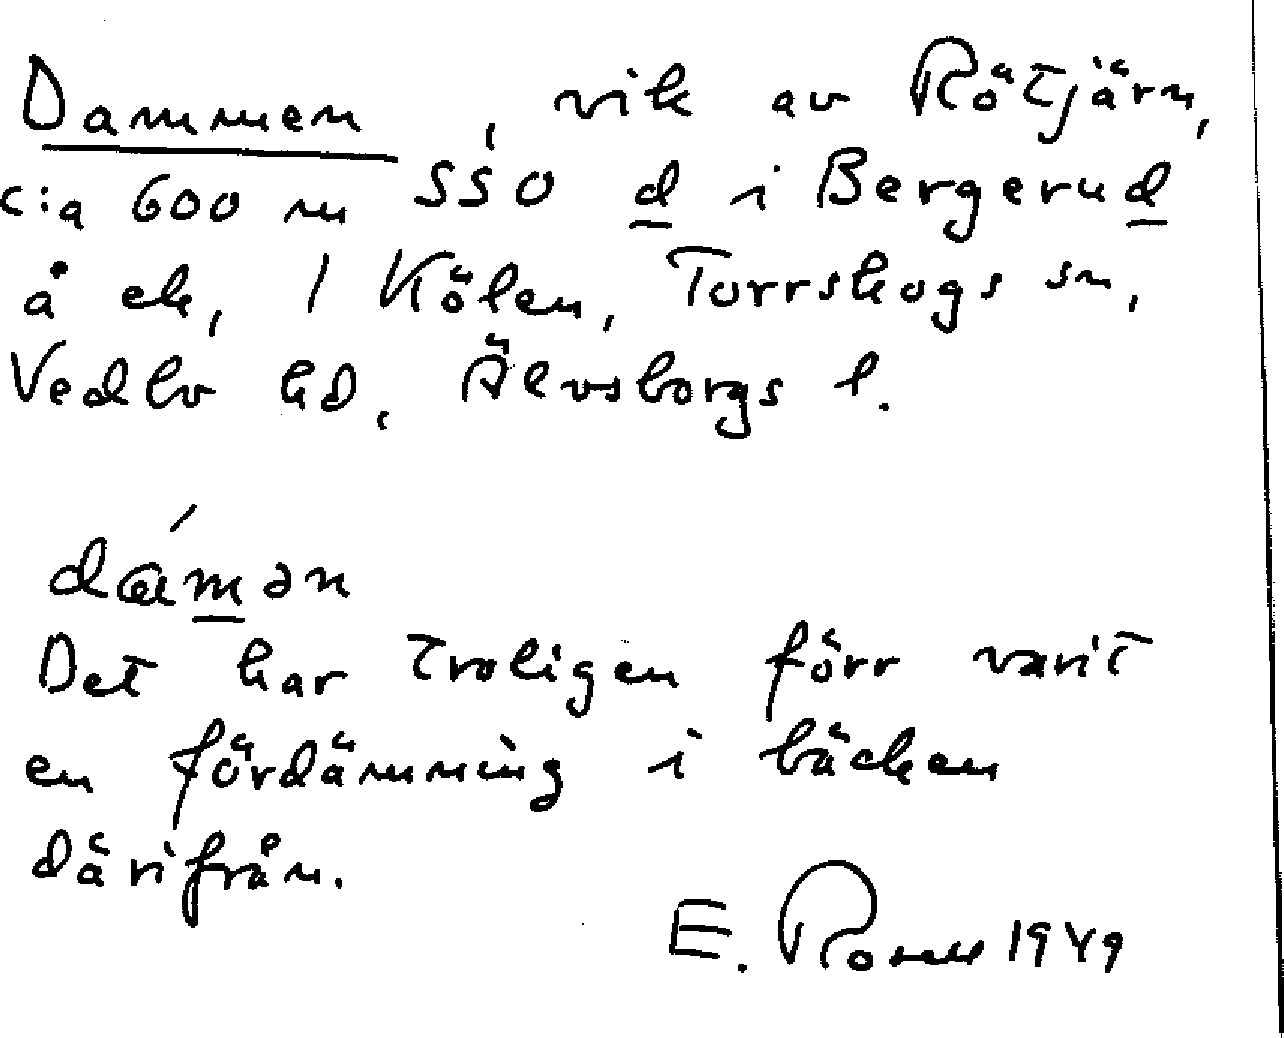 Dammen, vik av Rötjärn,
c:a 600 m SSO d i Bergerud
å ek, 1 Kölen, Torrskogs sn,
Vedbo hd, Älvsborgs l.
dámən
Det har troligen förr varit
en fördämning i bäcken
därifrån.
E. Rosell 1949